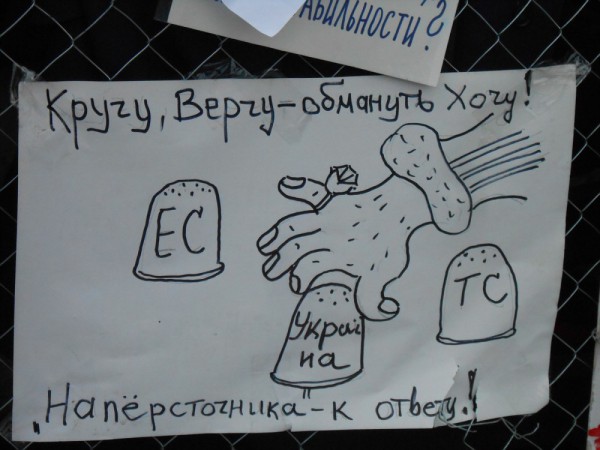 абильности?
Кручу, Верчу-обмануть Хочу!
ЕС
Украи
на
ТС
Напёрсточника-к ответу!